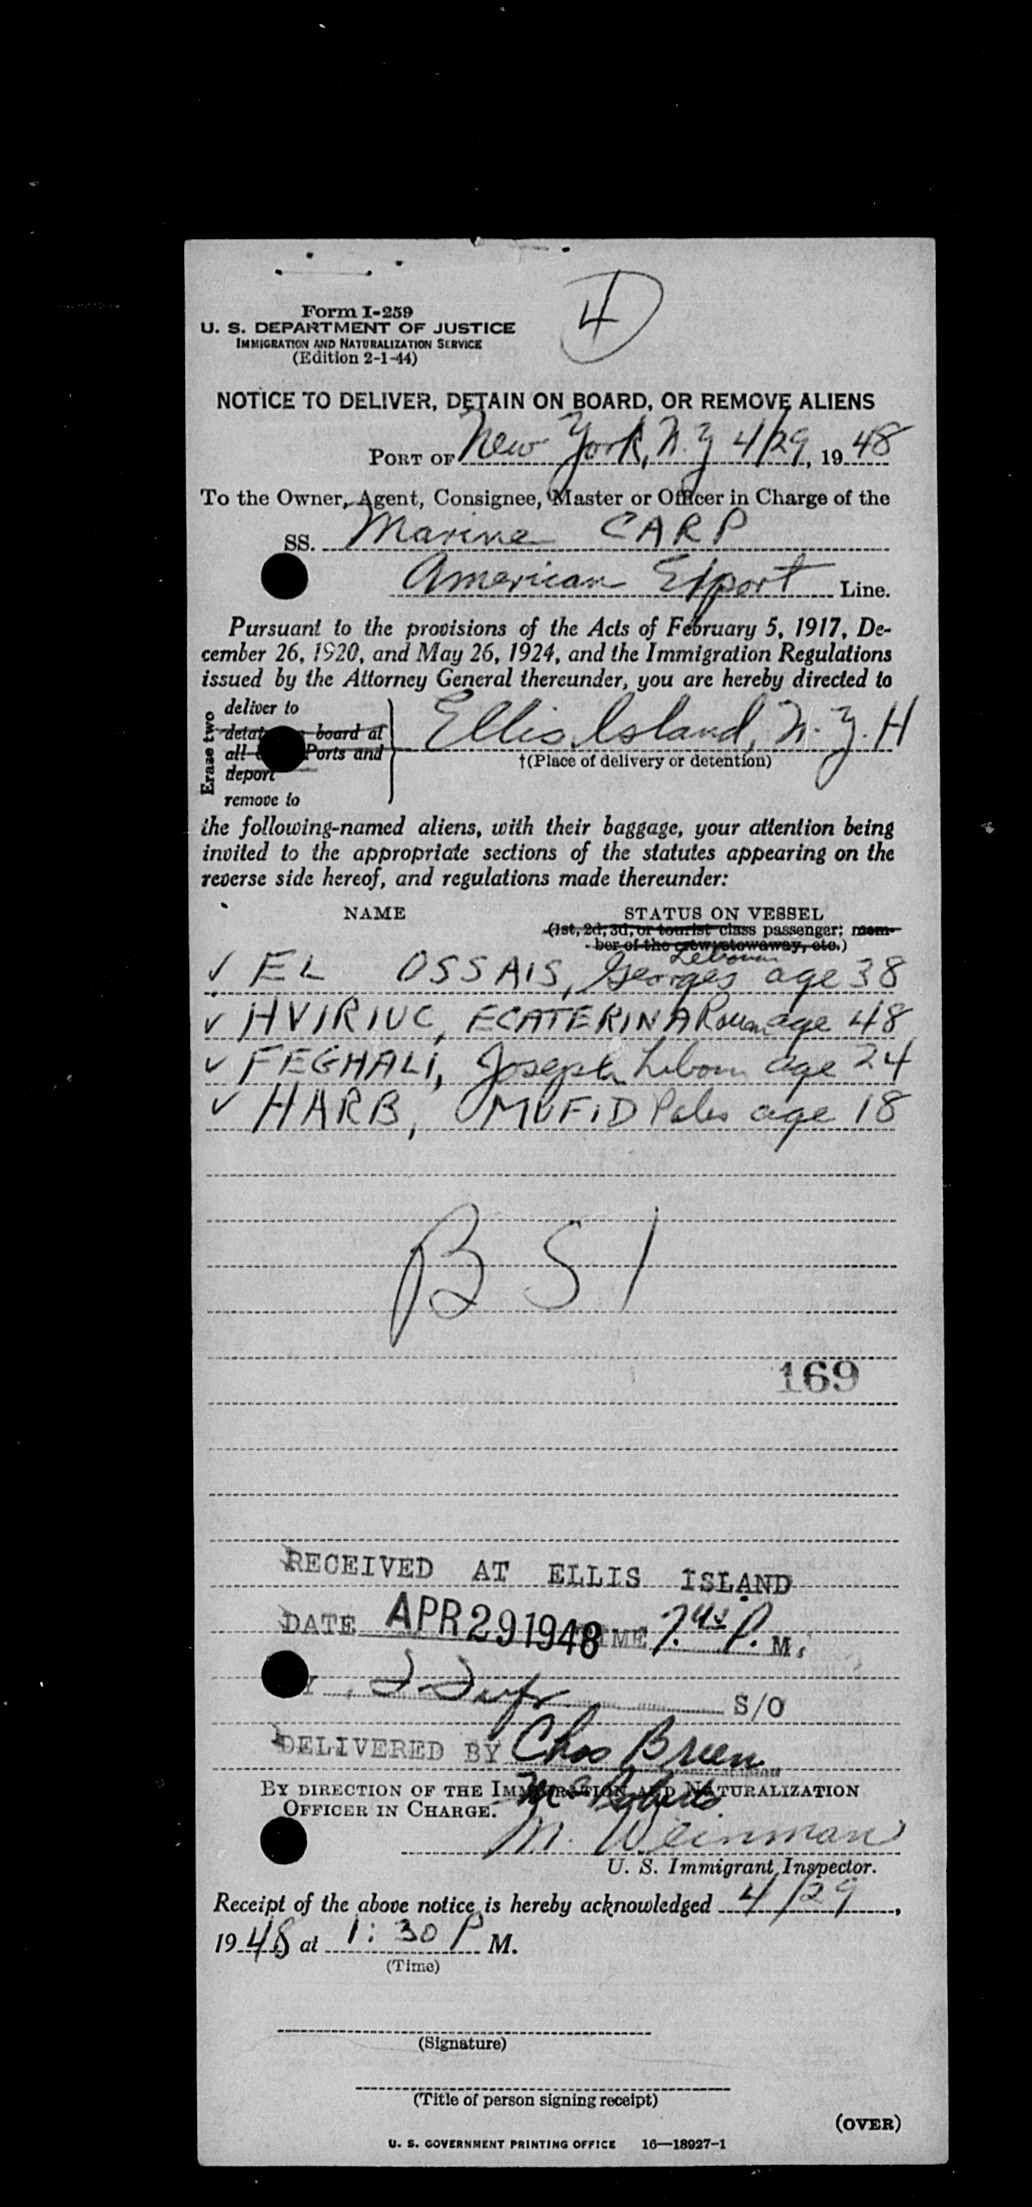 4
Form I-259
U. S. DEPARTMENT OF JUSTICE
IMMIGRATION AND NATURALIZATION SERVICE
(Edition 2-1-44)
NOTICE TO DELIVER, DETAIN ON BOARD, OR REMOVE ALIENS
PORT OF New York, N.Y 4/29, 1948
To the Owner, Agent, Consignee, Master or Officer in Charge of the
SS. Marine CARP
American Export Line.
Pursuant to the provisions of the Acts of February 5, 1917, De-
cember 26, 1920, and May 26, 1924, and the Immigration Regulations
issued by the Attorney General thereunder, you are hereby directed to
Erase two
deliver to
board at
all Ports and
deport
remove to
Ellis Island, N.Y. H
†(Place of delivery or detention)
the following-named aliens, with their baggage, your attention being
invited to the appropriate sections of the statutes appearing on the
reverse side hereof, and regulations made thereunder:
NAME STATUS ON VESSEL
(1st, 2d, 3d, or tourist class passenger; mem-
ber of the crew, stowaway, etc.)
✓ EL OSSAIS, Georges age 38
✓ HVIRIUC, ECATERINA Rouman age 48
✓ FEGHALI, Joseph age 24
✓ HARB, MUFID Pales age 18
B S I
169
RECEIVED AT ELLIS ISLAND
DATE APR 29 1948 TIME 7.45 P. M.
S/O
DELIVERED BY Chas Breen
BY DIRECTION OF THE IMMIGRATION AND NATURALIZATION
OFFICER IN CHARGE.
M. Weinman
U. S. Immigrant Inspector.
Receipt of the above notice is hereby acknowledged 4/29,
1948 at 1:30 P M.
(Time)
(Signature)
(Title of person signing receipt)
(OVER)
U. S. GOVERNMENT PRINTING OFFICE 16—18927-1